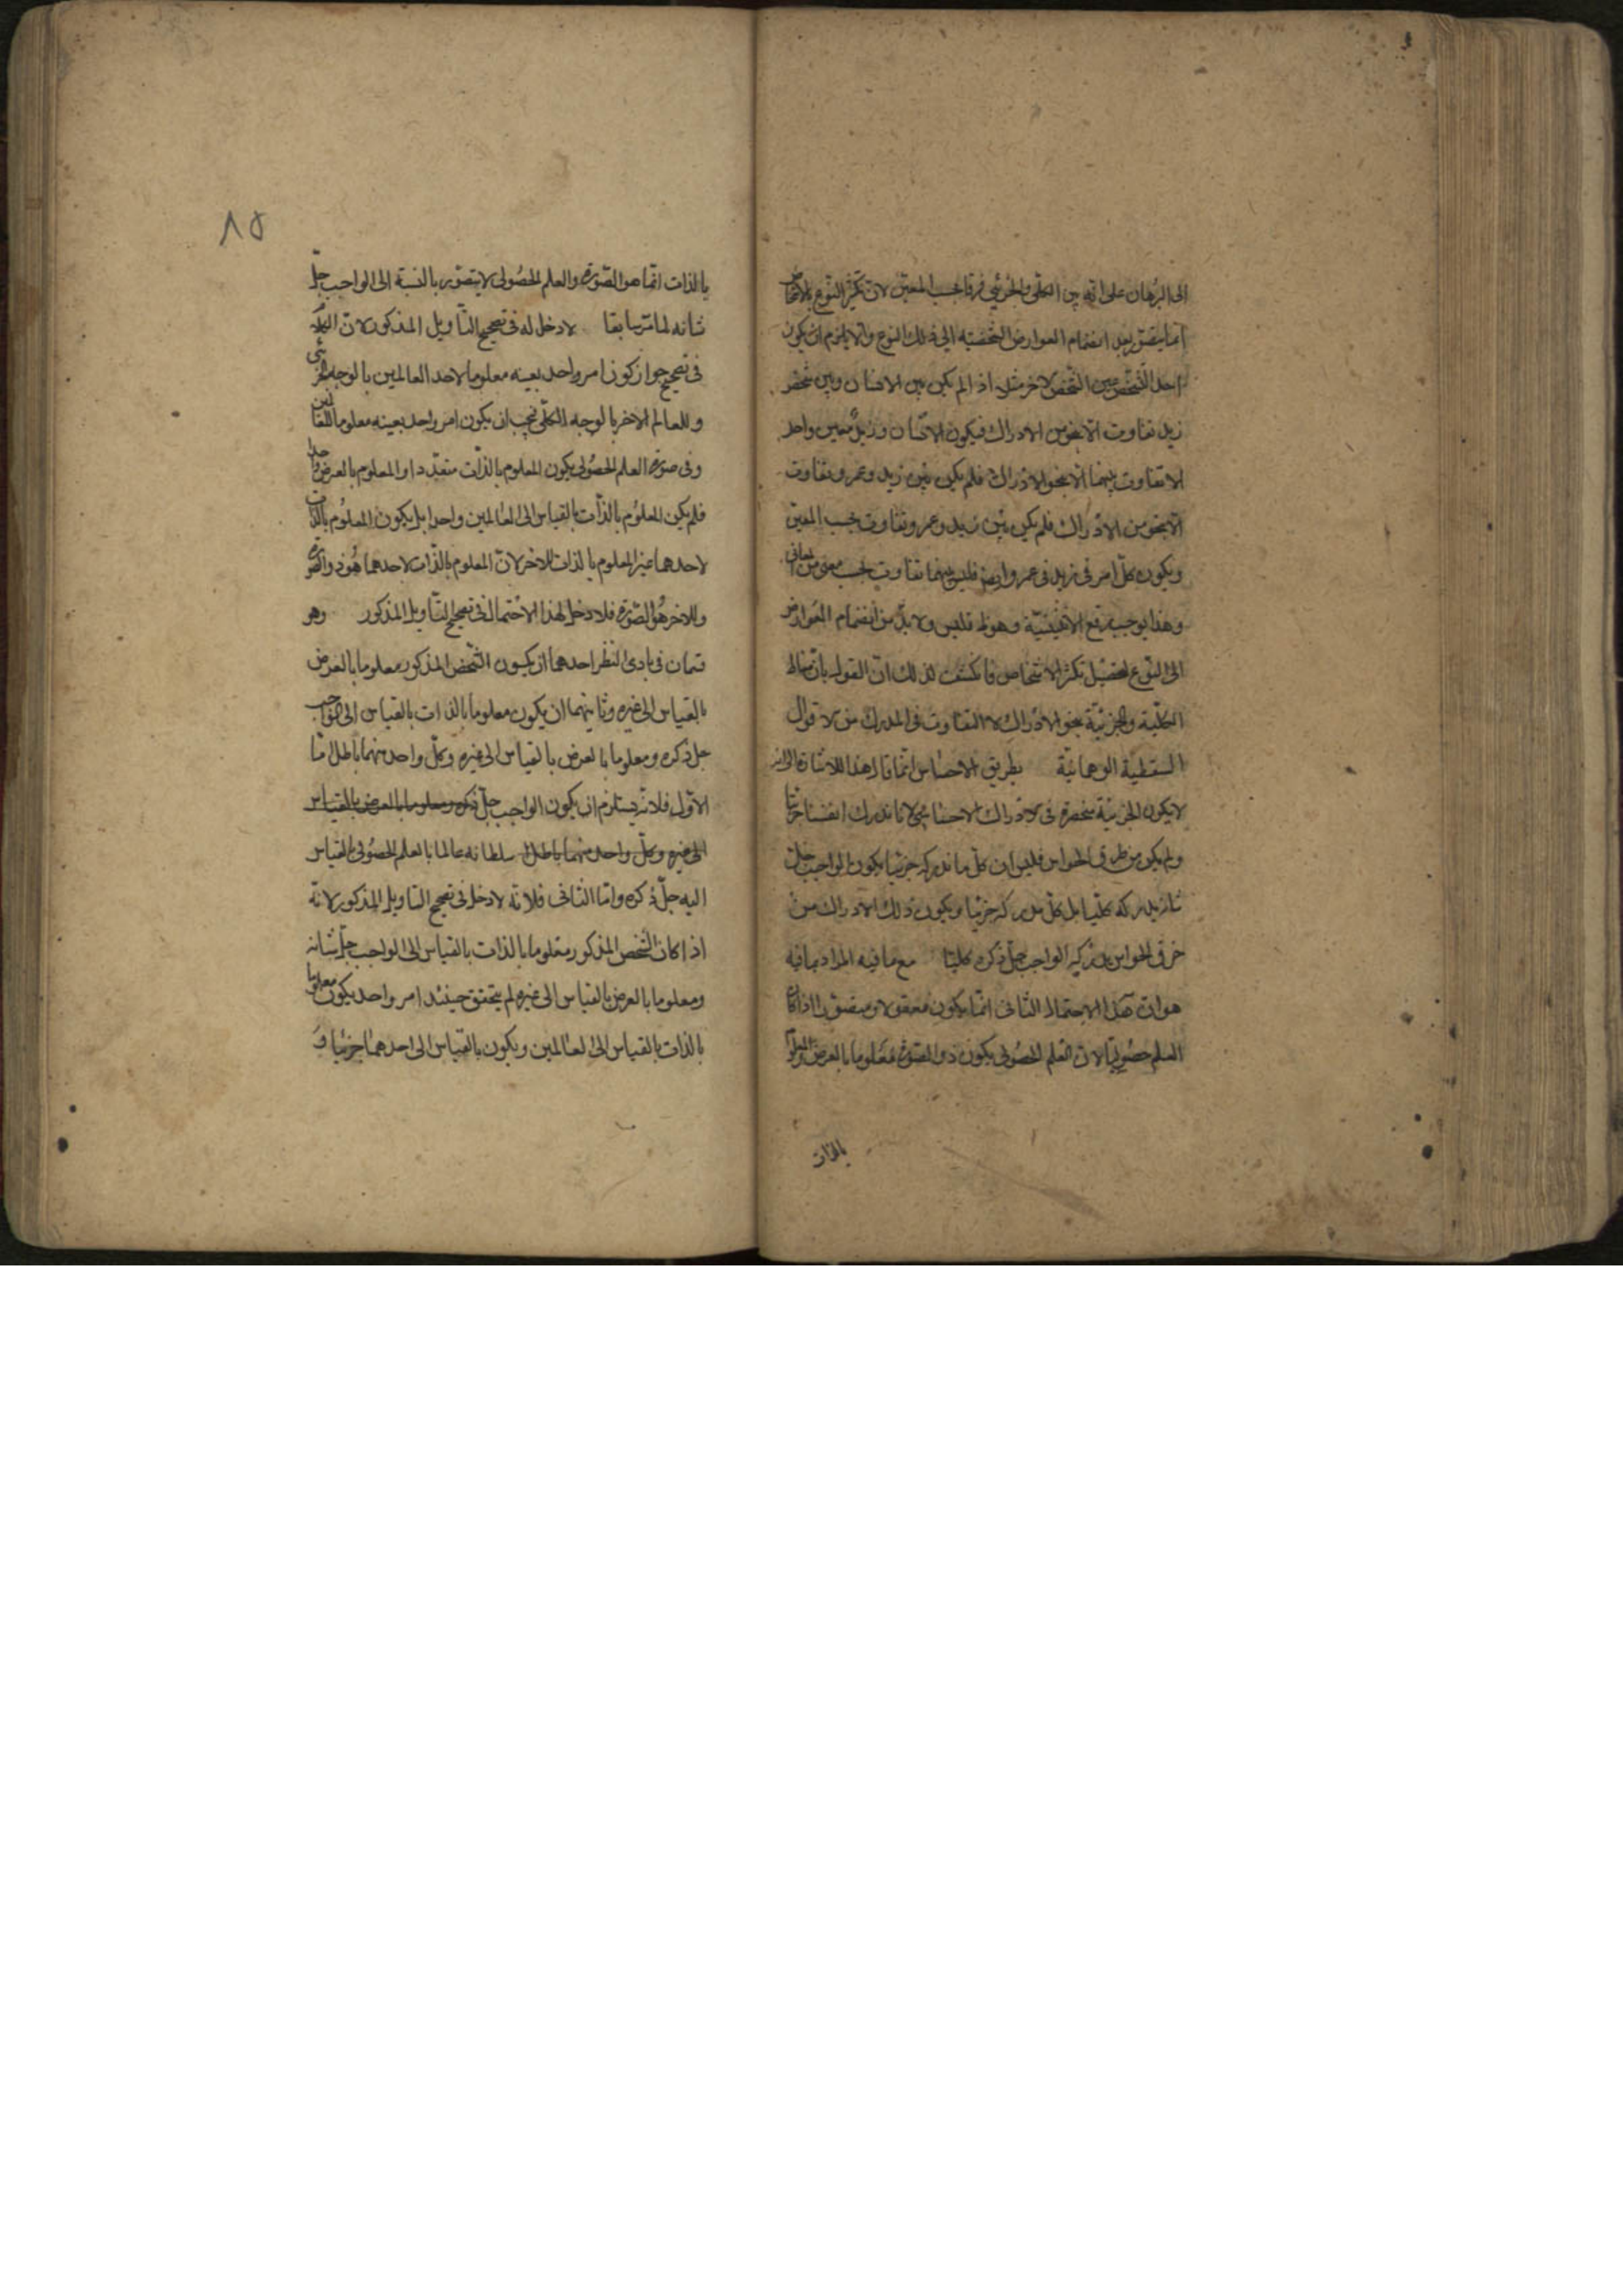 الى البرهان على انه بين الكلى والجزئى فرقا بحسب المعنى لان تكثر النوع بالاشخاص
انما يتصور بعد انضمام العوارض الشخصية الى ذلك النوع والا يلزم ان يكون
احد الشخص عين الشخص الاخر مثلا اذا لم يكن بين الانسان وبين شخص
زيد تفاوت الا بنحو من الادراك فيكون الانسان وزيد معنى واحد
لا تفاوت بينهما الا بنحو الادراك فلم يكن بين زيد وعمرو تفاوت
الا بنحو من الادراك فلم يكن بين زيد وعمرو تفاوت بحسب المعنى
ويكون كل امر فى زيد فى عمرو ايضا فليس بينهما تفاوت بحسب معنى من المعانى
وهذا يوجب رفع الاثنينية وهوظ فليس ولا بد من انضمام العوارض
الى النوع لتحصيل تكثر الاشخاص فانكشف لذلك ان القول بان مناط
الكلية والجزئية بنحو الادراك لا التفاوت فى المدرك من الاقوال
السقطية الوهمانية بطريق الاحساس انما قال هذا للاشارة الى انه
لا يكون الجزئية منحصرة فى الادراك الاحساسى لانا ندرك انفسنا جزئيا
ولم يكن من طرق الحواس فليس ان كل ما ندركه جزئيا يكون الواجب جل
شانه يدركه كليا بل كل مدركه جزئيا ويكون ذلك الادراك من
خرق الحواس يدركه الواجب جل ذكره كليا مع ما فيه المراد بما فيه
هو ان هذا الاحتمال الثانى انما يكون معقولا ومتصورا اذا كان
العلم حصوليا لان العلم الحصولى يكون ذو الصورة معلوما بالعرض والمعلوم
بالذات
٨٥
بالذات انما هو الصورة والعلم الحصولى لا يتصور بالنسبة الى الواجب جل
شانه لما مر سابقا لا دخل له فى تصحيح التاويل المذكور لان الكلام
فى تصحيح جواز كون امر واحد بعينه معلوما لاحد العالمين بالوجه الجزئى
وللعالم الاخر بالوجه الكلى فيجب ان يكون امر واحد بعينه معلوما للعالمين
وفى صورة العلم الحصولى يكون المعلوم بالذات متعددا والمعلوم بالعرض واحدا
فلم يكن المعلوم بالذات بالقياس الى العالمين واحدا بل يكون المعلوم بالذات
لاحدهما غير المعلوم بالذات للاخر لان المعلوم بالذات لاحدهما هو ذو الصورة
وللاخر هو الصورة فلا دخل لهذا الاحتمال فى تصحيح التاويل المذكور وهو
قسمان فى بادى النظر احدهما ان يكون الشخص المذكور معلوما بالعرض
بالقياس الى غيره وثانيهما ان يكون معلوما بالذات بالقياس الى الواجب
جل ذكره ومعلوما بالعرض بالقياس الى غيره وكل واحد منهما باطل اما
الاول فلانه يستلزم ان يكون الواجب جل ذكره ومعلوما بالعرض بالقياس
الى غيره وكل واحد منهما باطل سلطانه عالما بالعلم الحصولى بالقياس
اليه جل ذكره واما الثانى فلانه لا دخل فى تصحيح التاويل المذكور لانه
اذا كان الشخص المذكور معلوما بالذات بالقياس الى الواجب جل شانه
ومعلوما بالعرض بالقياس الى غيره لم يتحقق حينئذ امر واحد يكون معلوما
بالذات بالقياس الى العالمين ويكون بالقياس الى احدهما جزئيا و